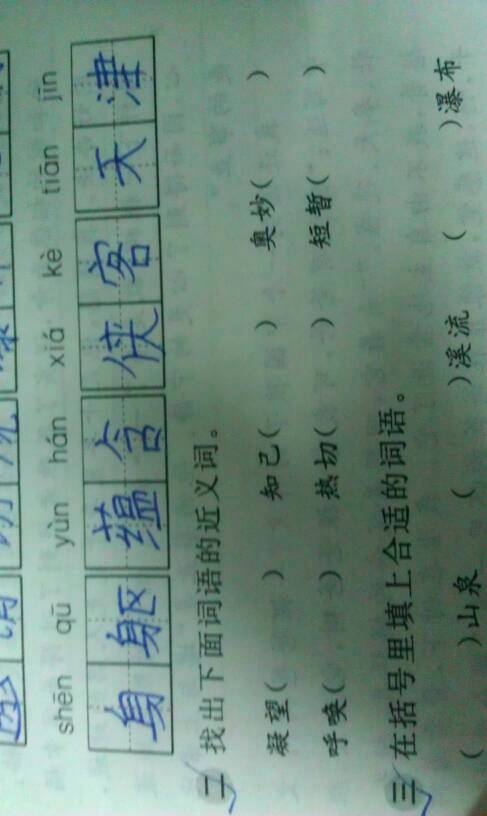 shēn qū yùn hán xiá kè tiān jīn
身躯 蕴含 侠客 天津
二 找出下面词语的近义词。
凝望( ) 知己( ) 奥妙( )
呼唤( ) 热切( ) 短暂( )
三 在括号里填上合适的词语。
( )山泉 ( )溪流 ( )瀑布